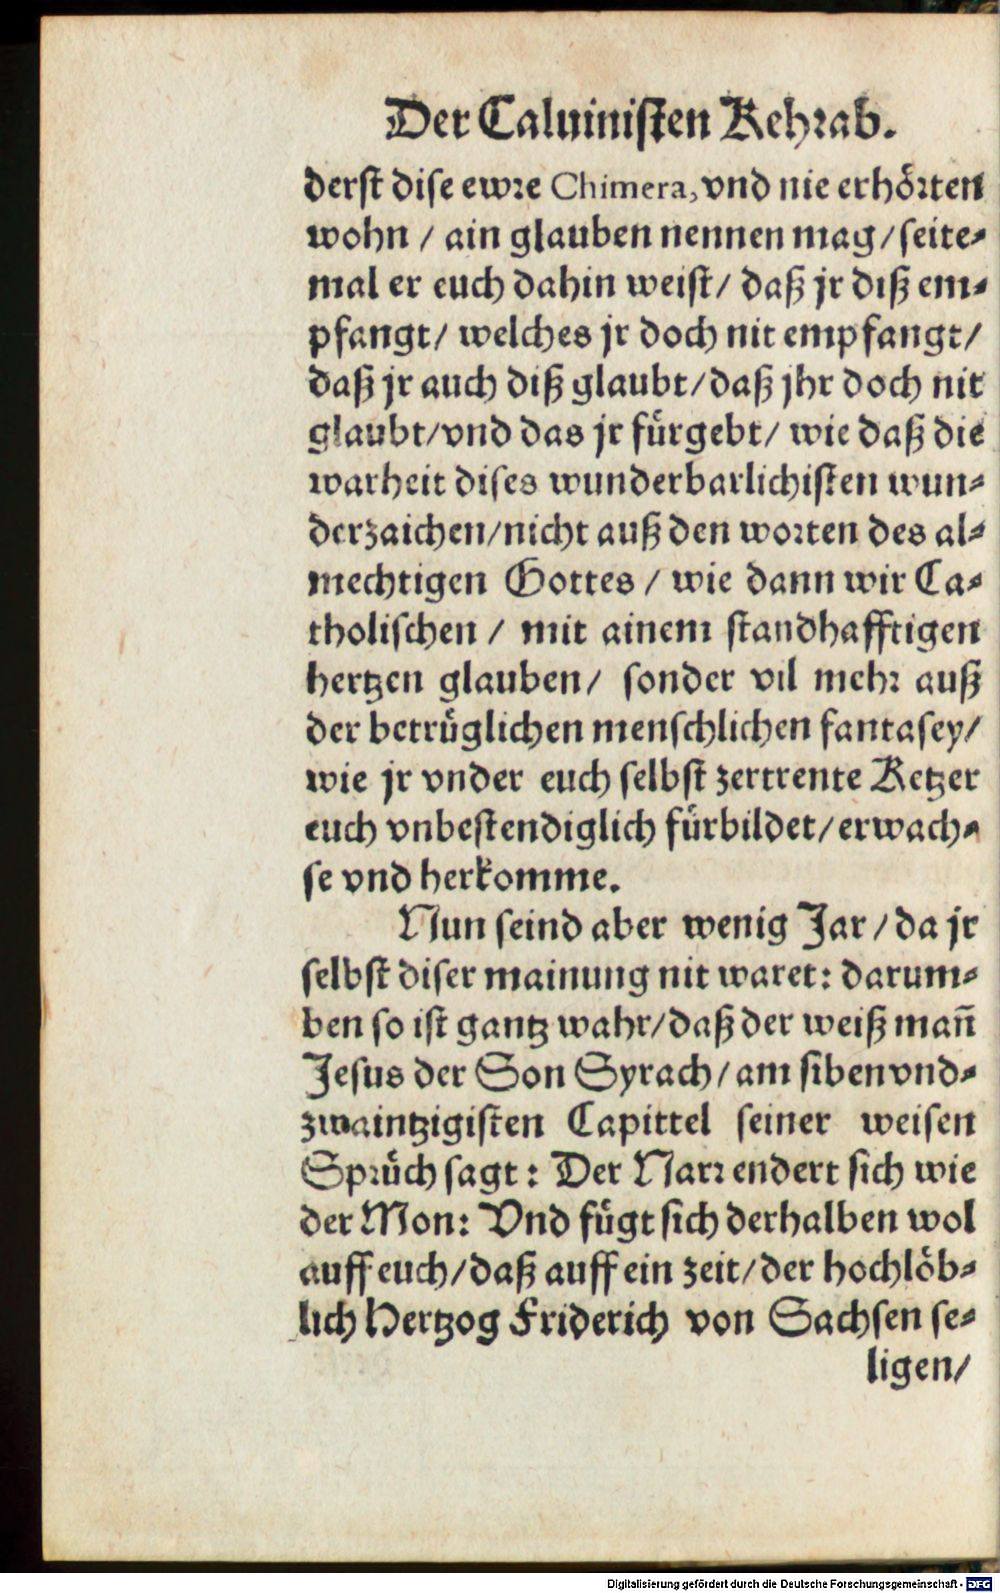 Der Caluinisten Kehrab.
derst dise ewre Chimera, vnd nie erhörten
wohn / ain glauben nennen mag / seite-
mal er euch dahin weist / daß jr diß em-
pfangt / welches jr doch nit empfangt /
daß jr auch diß glaubt / daß jhr doch nit
glaubt / vnd das jr fürgebt / wie daß die
warheit dises wunderbarlichisten wun-
derzaichen / nicht auß den worten des al-
mechtigen Gottes / wie dann wir Ca-
tholischen / mit ainem standhafftigen
hertzen glauben / sonder vil mehr auß
der betrüglichen menschlichen fantasey /
wie jr vnder euch selbst zertrente Ketzer
euch vnbestendiglich fürbildet / erwach-
se vnd herkomme.
Nun seind aber wenig Jar / da jr
selbst diser mainung nit waret: darum-
ben so ist gantz wahr / daß der weiß mañ
Jesus der Son Syrach / am sibenvnd-
zwaintzigisten Capittel seiner weisen
Sprüch sagt: Der Narr endert sich wie
der Mon: Vnd fügt sich derhalben wol
auff euch / daß auff ein zeit / der hochlöb-
lich Hertzog Friderich von Sachsen se-
ligen /
Digitalisierung gefördert durch die Deutsche Forschungsgemeinschaft - DFG